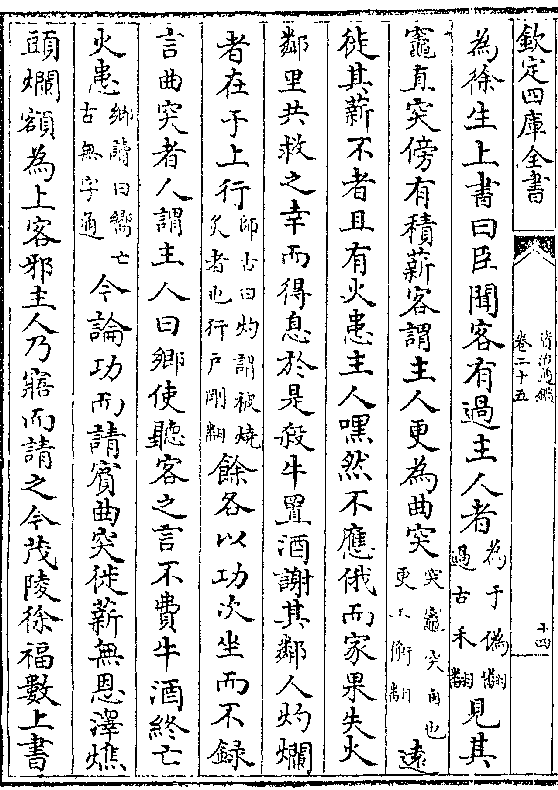 欽定四庫全書
資治通鑑
卷二十五
十四
為徐生上書曰臣聞客有過主人者為于偽翻過古禾翻見其
竈直突傍有積薪客謂主人更為曲突突竈突囱也更工衡翻遠
徙其薪不者且有火患主人嘿然不應俄而家果失火
鄰里共救之幸而得息於是殺牛置酒謝其鄰人灼爛
者在于上行師古曰灼謂被燒炙者也行戶剛翻餘各以功次坐而不録
言曲突者人謂主人曰鄉使聽客之言不費牛酒終亡
火患鄉讀曰嚮亡古無字通今論功而請賓曲突徙薪無恩澤燋
頭爛額為上客邪主人乃寤而請之今茂陵徐福數上書